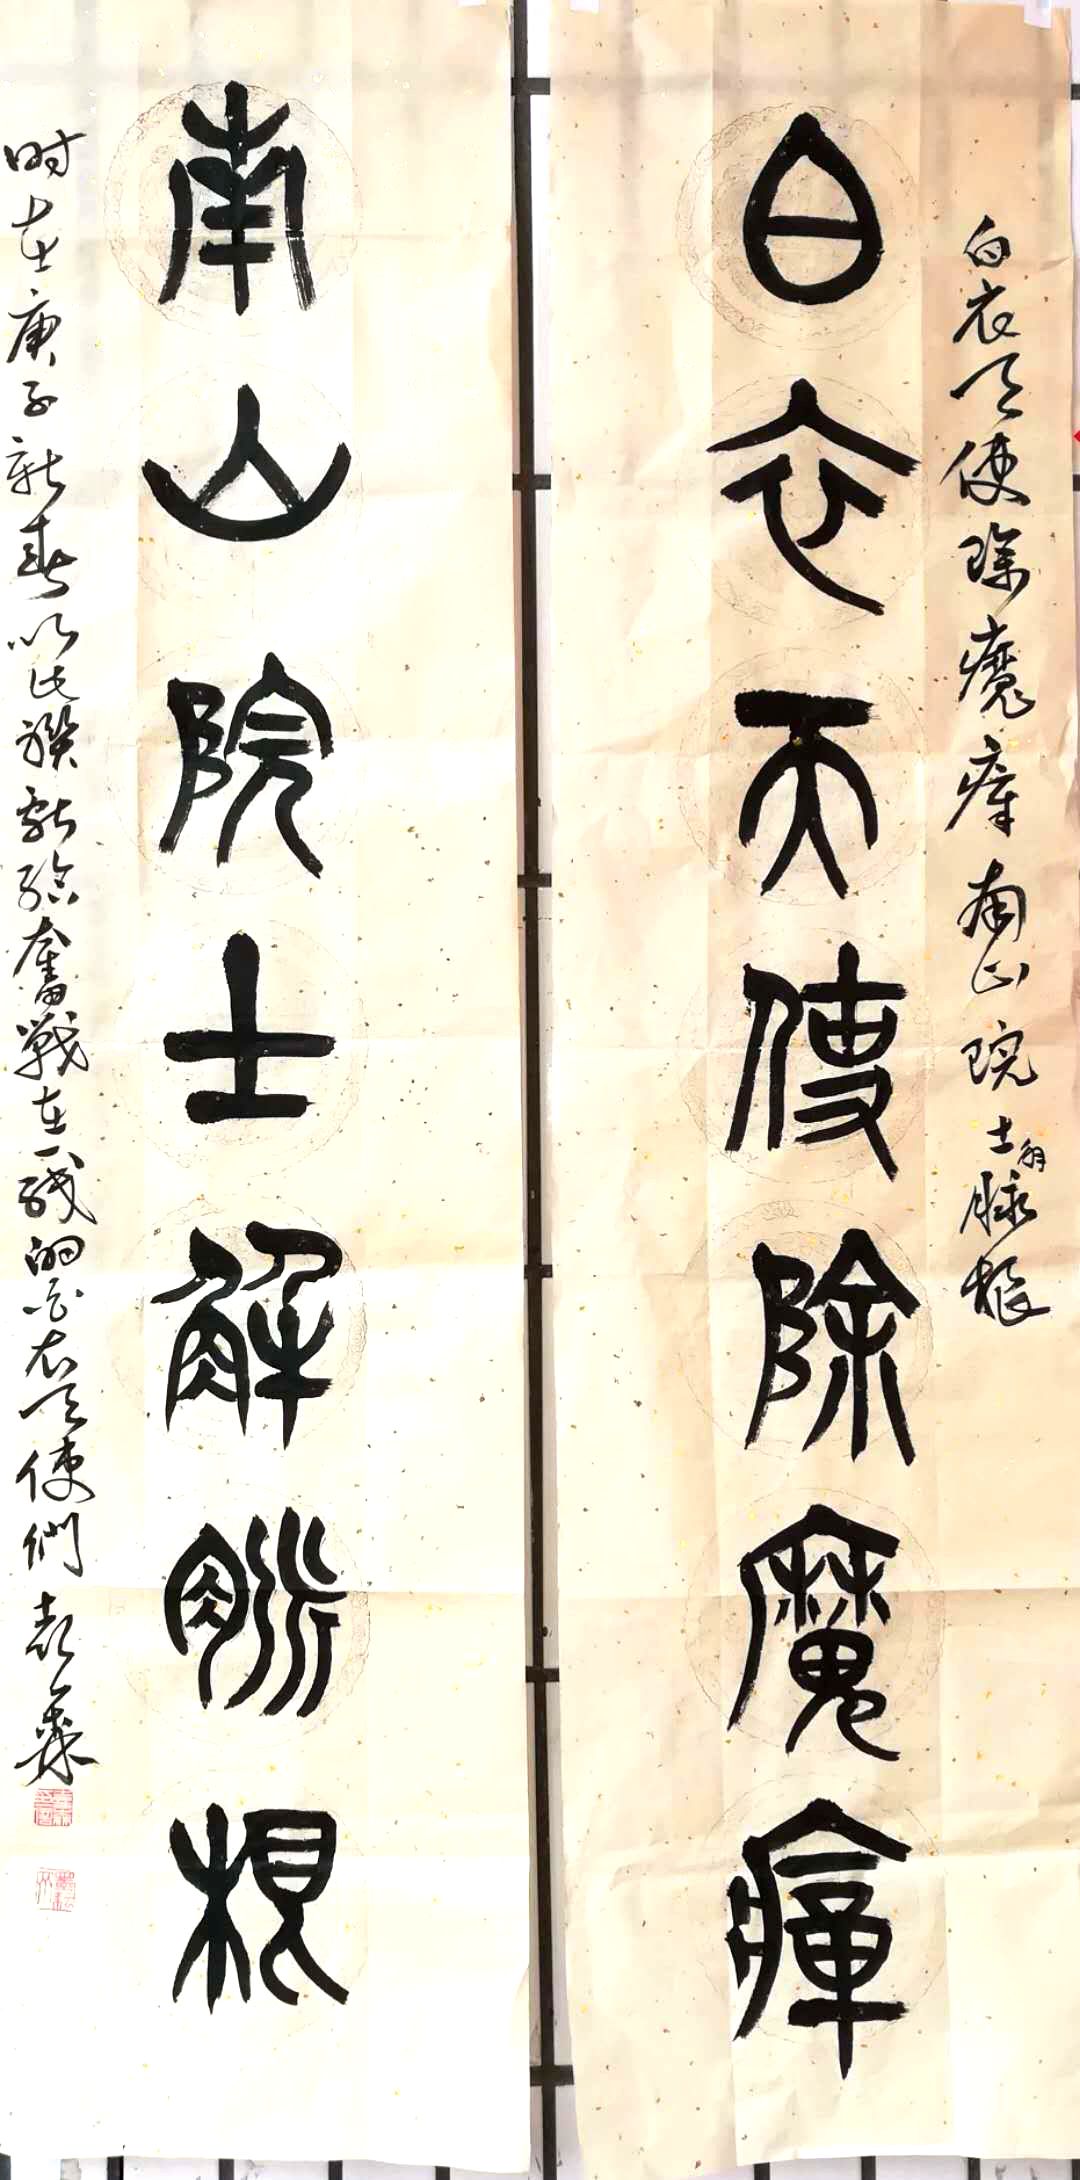 白衣天使除魔瘴南山院士解脉根
白衣天使除魔瘴
南山院士解脉根
时在庚子新春以此联献给奋戰在一线的白衣天使們 袁华